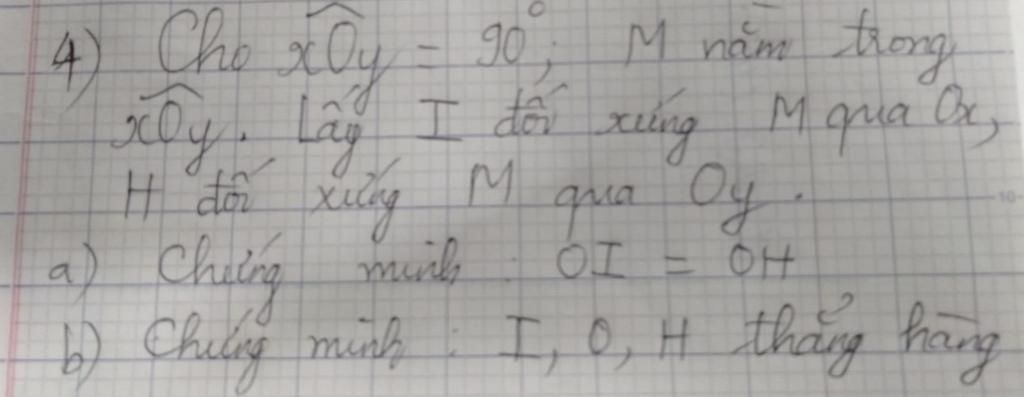 4) Cho xOy = 90°; M nằm trong
xOy. Lấy I đối xứng M qua Ox,
H đối xứng M qua Oy.
a) Chứng minh: OI = OH
b) Chứng minh: I, O, H thẳng hàng